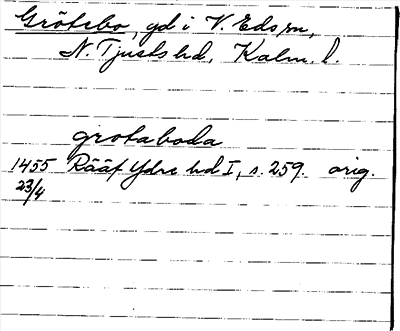 Grötsbo, gd i V. Eds sn,
N. Tjusts hd, Kalm. l.
grotaboda
1455 Rääf Ydre hd I, s. 259. orig.
23/4